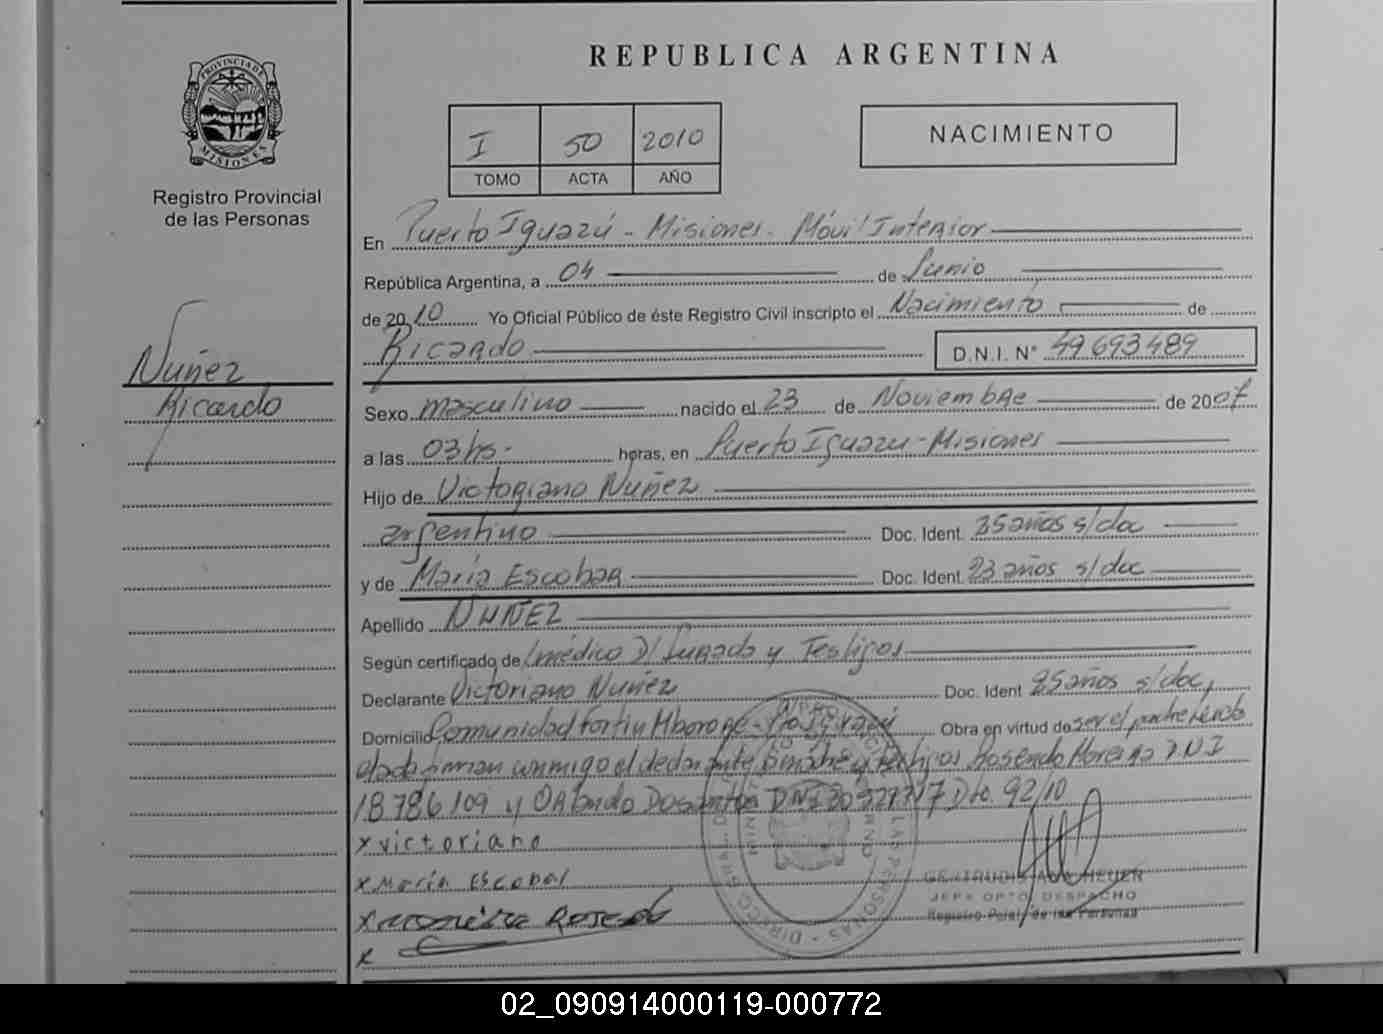 PROVINCIA DE
MISIONES
Registro Provincial
de las Personas
Nuñez
Ricardo
REPUBLICA ARGENTINA
I 50 2010
TOMO ACTA AÑO
NACIMIENTO
En Puerto Iguazú - Misiones - Móvil Interior
República Argentina, a 04 de Junio
de 2010 Yo Oficial Público de éste Registro Civil inscripto el Nacimiento de
Ricardo D.N.I. N° 49693489
Sexo masculino nacido el 23 de Noviembre de 2007
a las 03 hs- horas, en Puerto Iguazu - Misiones
Hijo de Victoriano Nuñez
argentino Doc. Ident. 35 años s/doc
y de María Escobar Doc. Ident. 23 años s/doc
Apellido NUÑEZ
Según certificado de médico D/ Jurada y Testigos
Declarante Victoriano Nuñez Doc. Ident 25 años s/doc,
Domicilio Comunidad Fortin Mbororé - Pto Iguazú Obra en virtud de ser el padre
firman conmigo el declarante, madre y testigos Rosendo Moreira DNI
18786109 y Orlando Dosantos DNI Dto. 92/10
x victoriano
x María Escobar
x
x
JEFA DPTO. DESPACHO
Registro Pcial. de las Personas
02_090914000119-000772